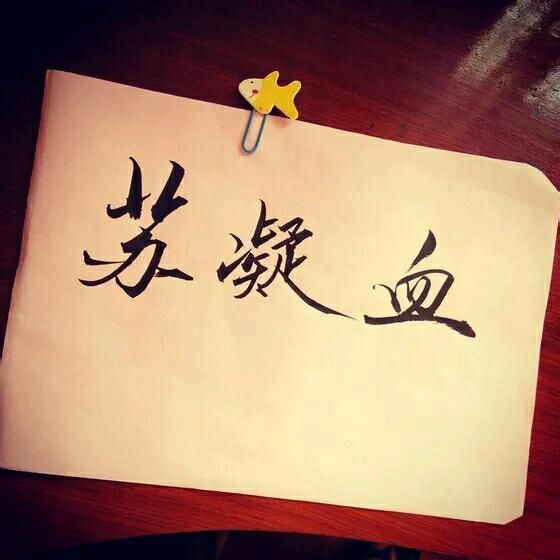 苏凝血